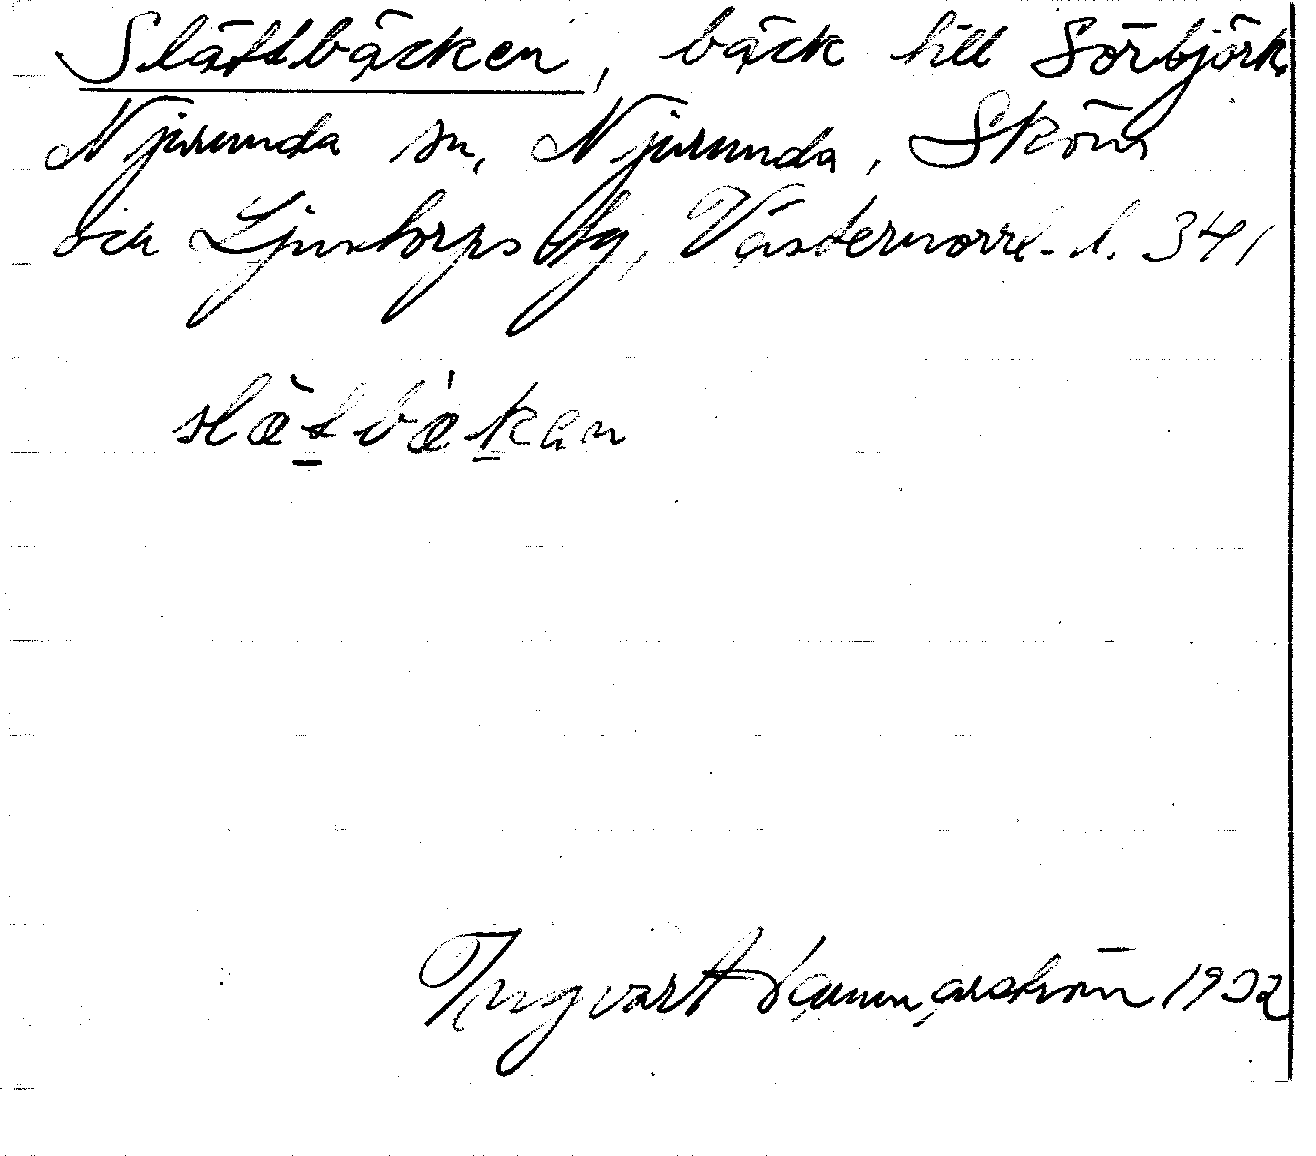 Slättbäcken, bäck till Sörbjörk,
Njurunda sn, Njurunda, Sköns
och Ljustorps tg, Västernorrl. l. 341
slætbækan
Ingvart Hammarström 1932